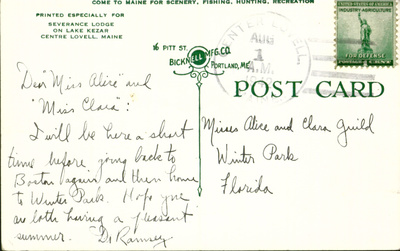 COME TO MAINE FOR SCENERY, FISHING, HUNTING, RECREATION
PRINTED ESPECIALLY FOR
SEVERANCE LODGE
ON LAKE KEZAR
CENTRE LOVELL, MAINE
16 PITT ST.
BICKNELL MFG. CO.
PORTLAND, ME.
AUG
1
A.M.
UNITED STATES OF AMERICA
INDUSTRY AGRICULTURE
FOR DEFENSE
POST CARD
Dear "Miss Alice" and
"Miss Clara":
I will be here a short
time before going back to
Boston again and then home
to Winter Park. Hope you
are both having a pleasant
summer. "Dr Ramsey
Misses Alice and Clara Guild
Winter Park
Florida